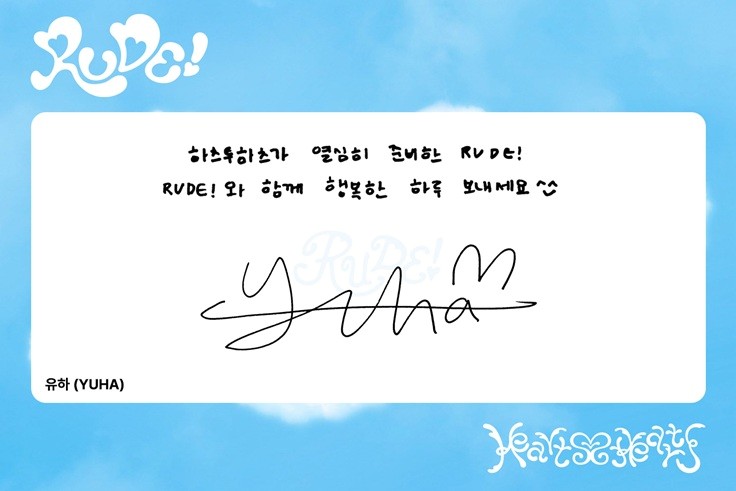 RUDE!
하츠투하츠가 열심히 준비한 RUDE!
RUDE! 와 함께 행복한 하루 보내세요^^
RUDE!
yuha
유하 (YUHA)
Hearts2Hearts